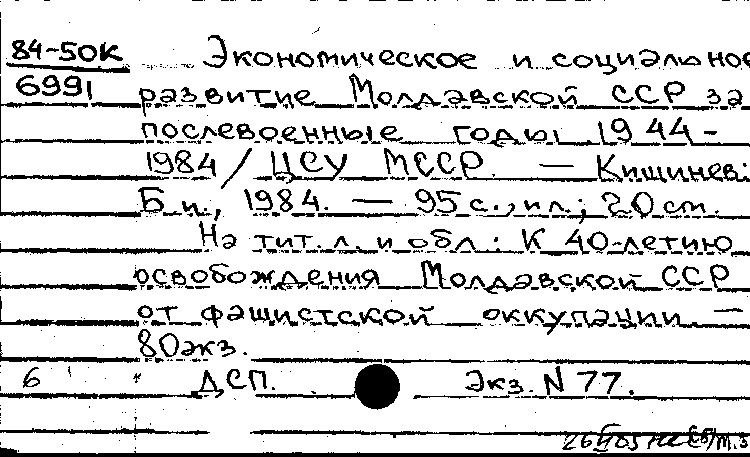 84-50К Экономическое и социальное
6991 развитие Молдавской ССР за
послевоенные годы 1944-
1984 / ЦСУ МССР. — Кишинев:
Б.и., 1984. — 95 с., ил.; 20 см.
На тит. л. и обл.: К 40-летию
освобождения Молдавской ССР
от фашистской оккупации. —
80 экз.
6 ДСП. Экз. N 77.